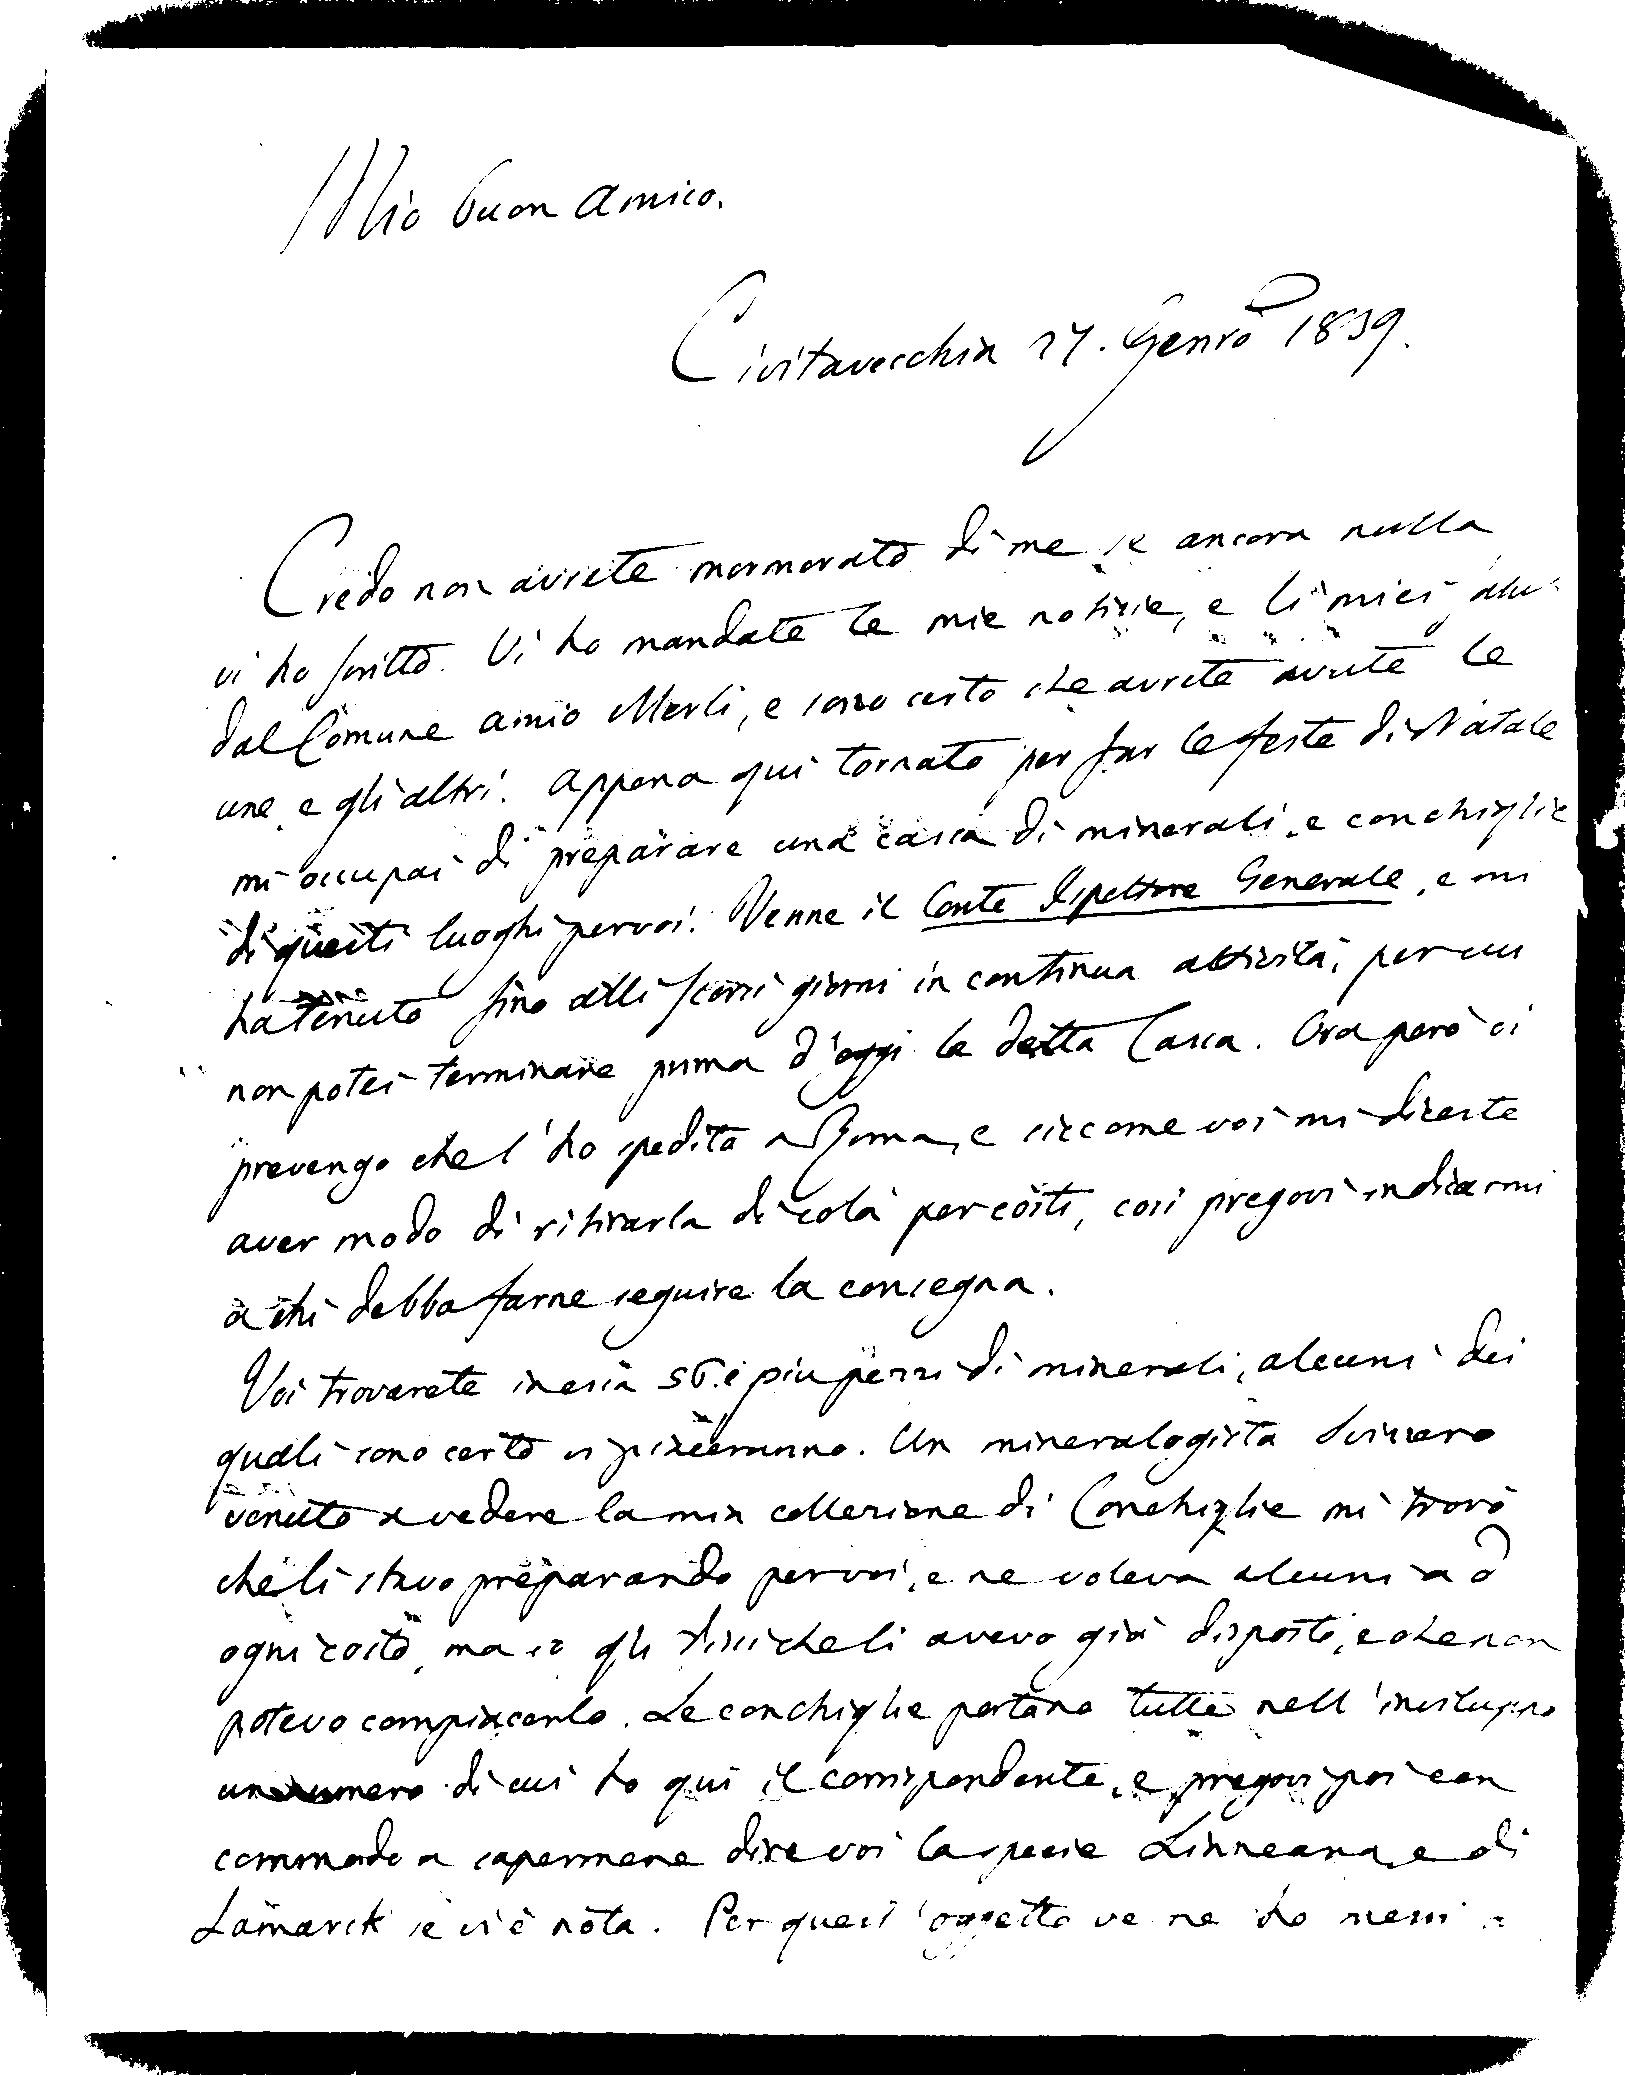 Mio buon amico.
Civitavecchia 27. Genro 1839.
Credo non avrete mormorato di me se ancora nulla
vi ho scritto. Vi ho mandate le mie notizie, e li miei
dal Comune amio Merli, e sono certo che avrete avute le
une, e gli altri. Appena qui tornato per far le feste di Natale
mi occupai di preparare una cassa di minerali, e conchiglie
di questi luoghi per voi. Venne il Conte Ispettore Generale, e mi
ha tenuto fino alli scorsi giorni in continua attività, per cui
non potei terminare prima d'oggi la detta Cassa. Ora però vi
prevengo che l'ho spedita a Roma, e siccome voi mi diceste
aver modo di ritirarla di colà per costì, così pregovi indicarmi
a chi debba farne seguire la consegna.
Voi troverete in essa 56. e più pezzi di minerali, alcuni dei
quali sono certo vi piaceranno. Un mineralogista Svizzero
venuto a vedere la mia collezione di Conchiglie mi trovò
che li stavo preparando per voi, e ne voleva alcuni ad
ogni costo, ma io gli dissi che li avevo già disposti, e che non
potevo compiacerlo. Le conchiglie portano tutte nell'inviluppo
un numero di cui ho qui il corrispondente, e pregovi poi con
commodo a sapermene dire voi la specie Linneana, e di
Lamarck se vi è nota. Per quest'oggetto ve ne ho messi